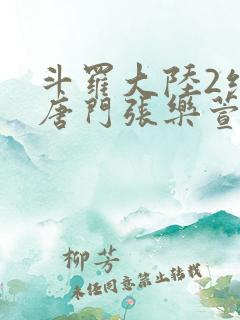 斗羅大陸2絕
唐門張樂萱
柳芳
未經同意禁止轉載